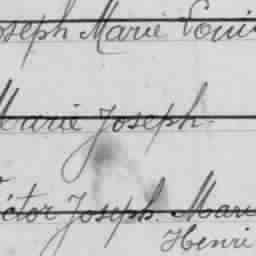 oseph Marie Loui
Marie Joseph.
ictor Joseph. Mari
Henri